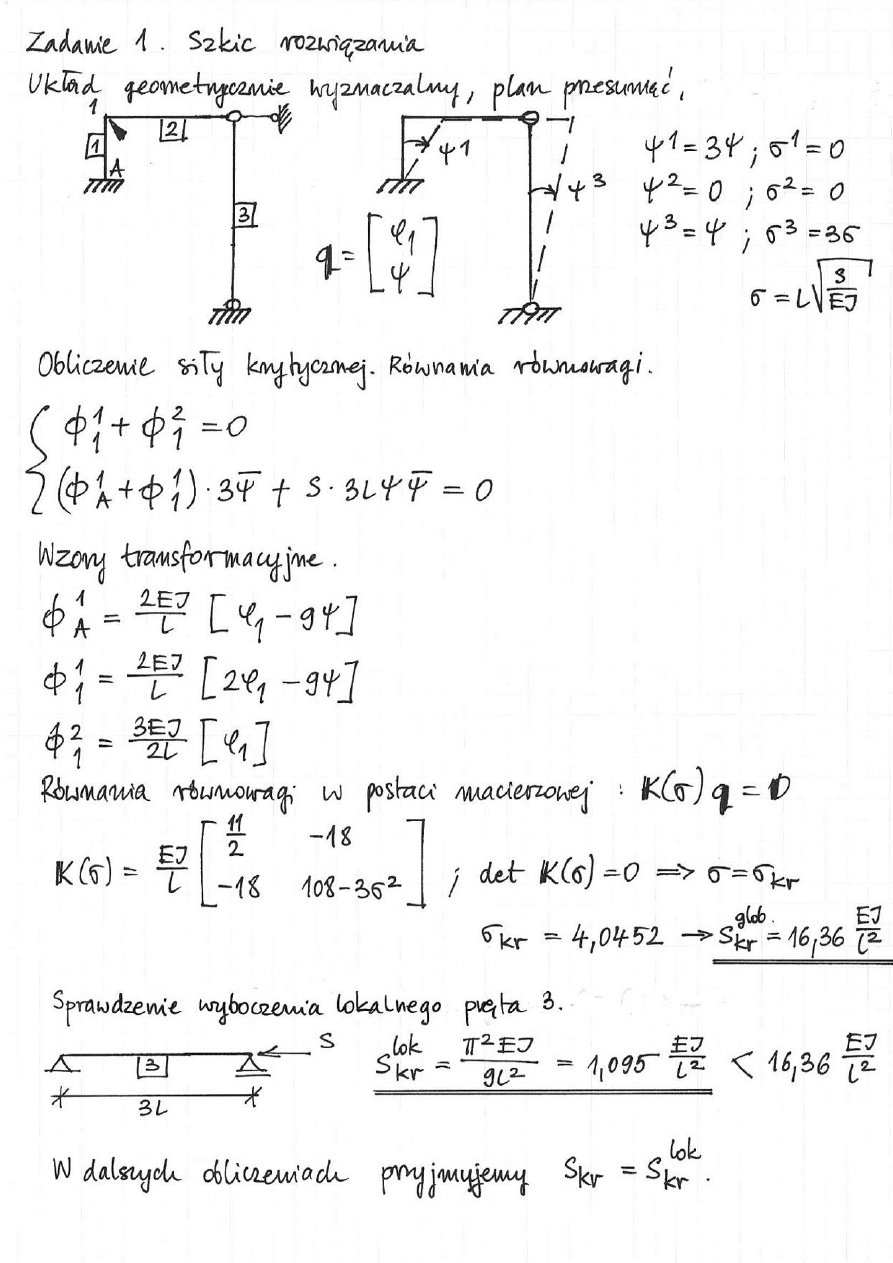 Zadanie 1. Szkic rozwiązania
Układ geometrycznie wyznaczalny, plan przesunięć,
1 2 1 A 3
ψ1 ψ3
q = [φ1 ψ]
ψ^1 = 3ψ ; σ^1 = 0
ψ^2 = 0 ; σ^2 = 0
ψ^3 = ψ ; σ^3 = 3σ
σ = L√(S/EJ)
Obliczenie siły krytycznej. Równania równowagi.
Φ_1^1 + Φ_1^2 = 0
(Φ_A^1 + Φ_1^1) · 3Ψ̄ + S · 3LΨΨ̄ = 0
Wzory transformacyjne.
Φ_A^1 = 2EJ/L [φ_1 - 9ψ]
Φ_1^1 = 2EJ/L [2φ_1 - 9ψ]
Φ_1^2 = 3EJ/2L [φ_1]
Równania równowagi w postaci macierzowej : K(σ) q = 0
K(σ) = EJ/L [11/2 -18
-18 108-3σ^2] ; det K(σ) = 0 => σ = σ_kr
σ_kr = 4,0452 → S_kr^glob. = 16,36 EJ/L^2
Sprawdzenie wyboczenia lokalnego pręta 3.
3 S
3L
S_kr^lok = π^2EJ/9L^2 = 1,095 EJ/L^2 < 16,36 EJ/L^2
W dalszych obliczeniach przyjmujemy S_kr = S_kr^lok.